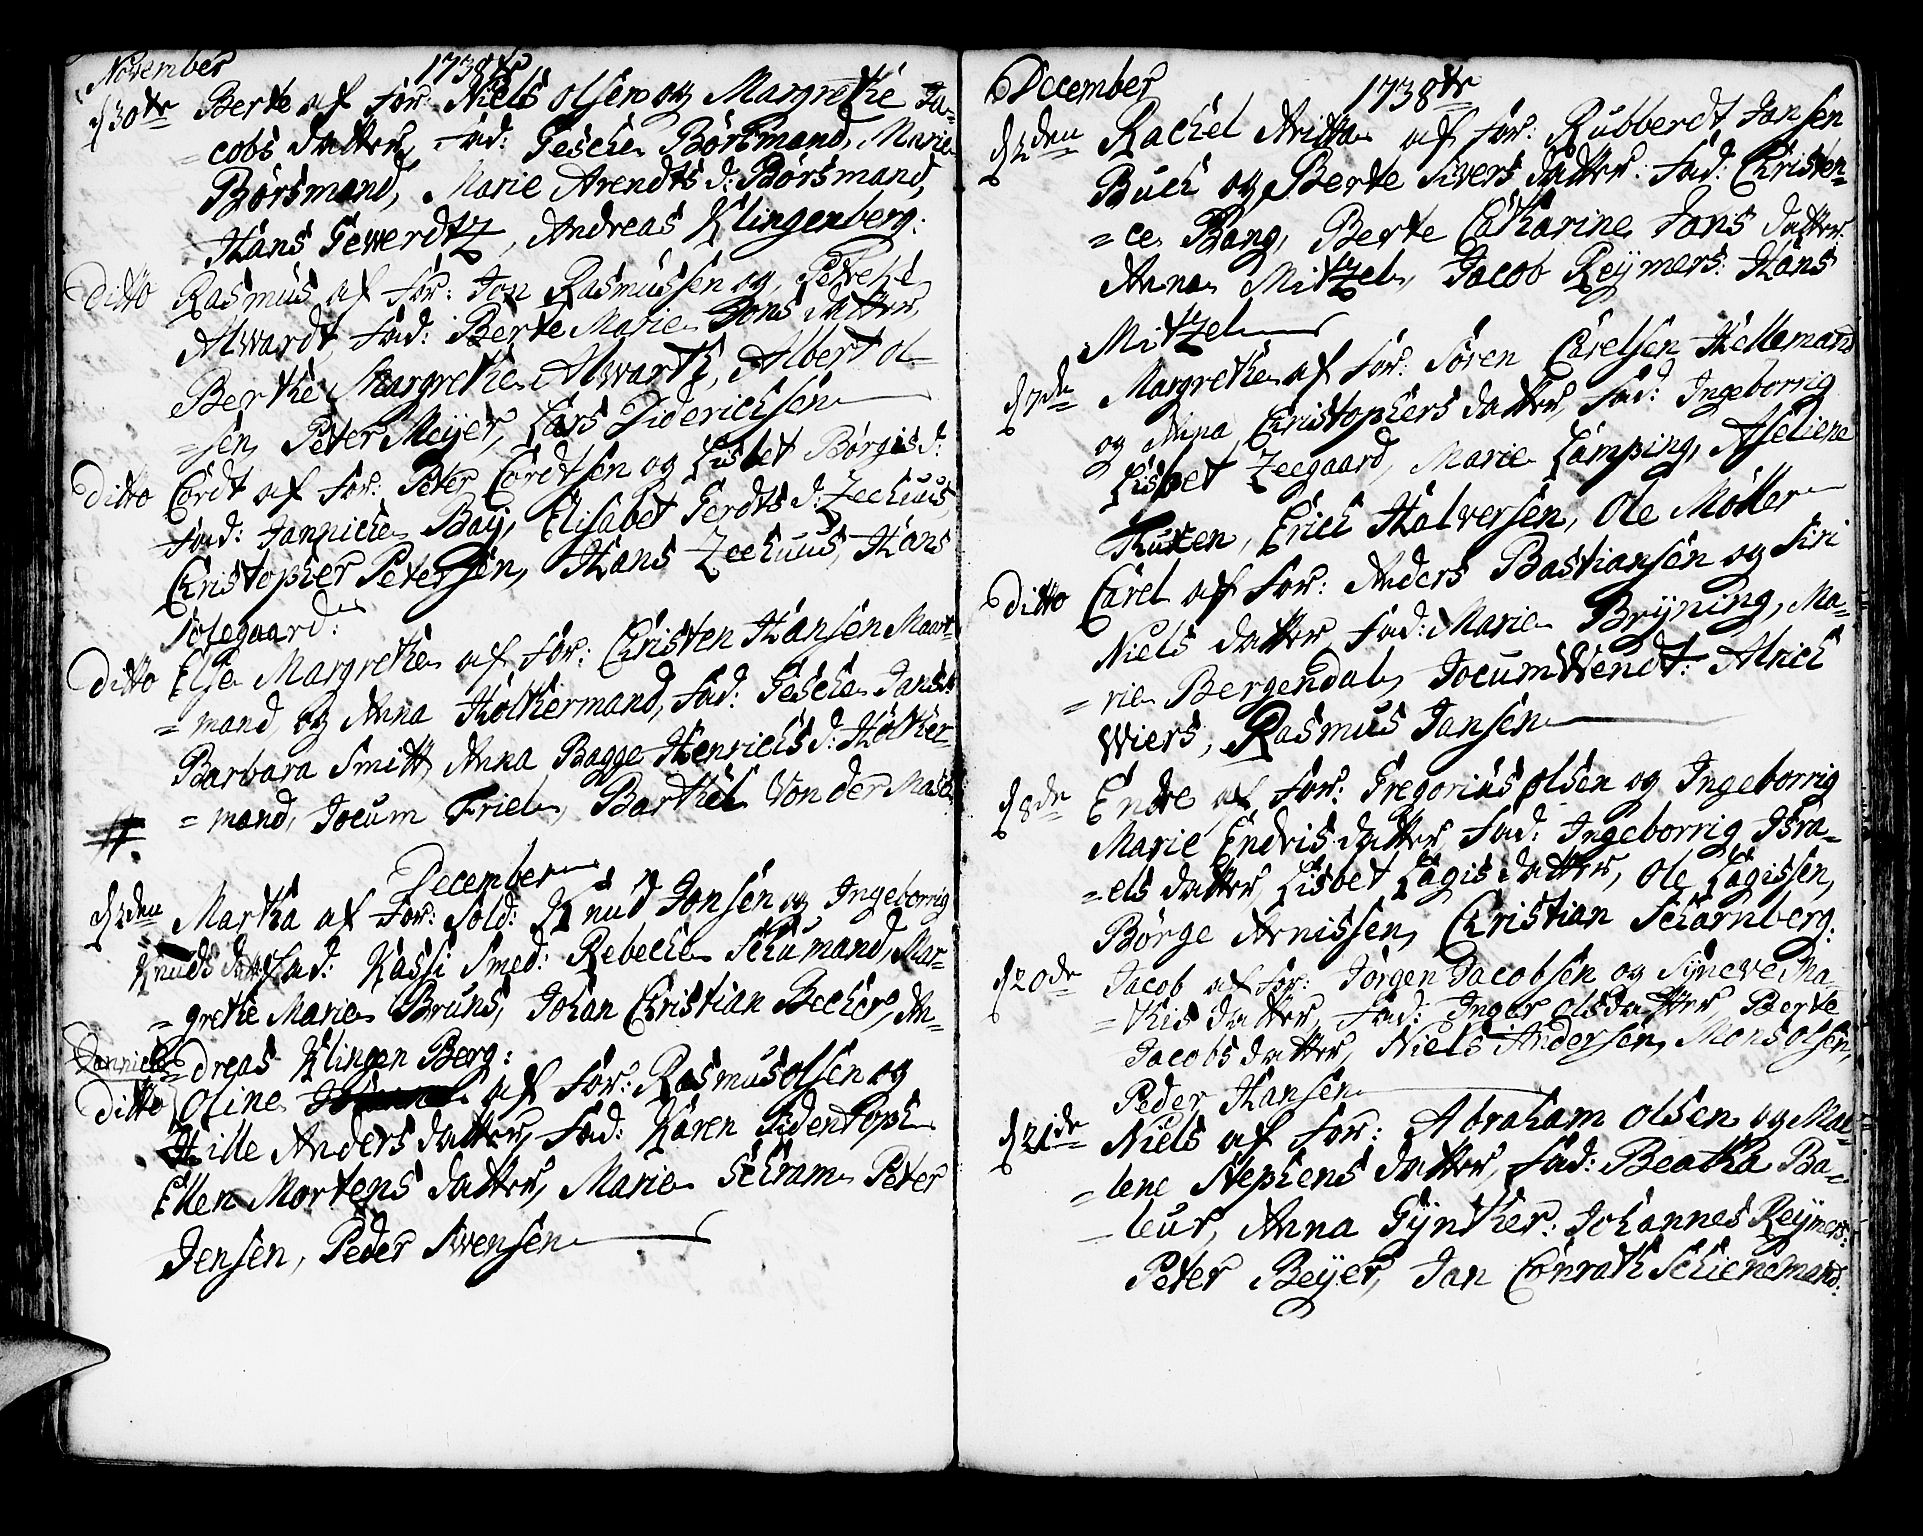 November 1738te
d 30te Berte af For: Niels olsen og Margrethe Ja-
=cobs datter, Fad: Gesche Börsmand, Marie
Börsmand, Marie Arendts d: Börsmand,
Hans Gewerdtz, Andreas Klingenberg:
Ditto Rasmus af For: Jan Rasmussen og, Petrche
Alwardt, Fad: Berte Marie Jons datter,
Berthe Margrethe Alwarth, Albert ol-
=sen, Peter Meyer, Lars Diderichsen
Ditto Cordt af For: Peter Cordtsen og Lisbet Börgis d:
Fad: Jannicke Baij, Elisabet Gerdts d: Zeehuus,
Christopher Petersen, Hans Zeehuus, Hans
Solegaard:
Ditto Else Margrethe af For: Christen Hansen Mavrt-
=mand, og Anna Holtkermand, Fad: Gesche Jansen
Barbara Smitt, Anna Bagge Henrichs d: Holtker-
=mand, Jocum Friel, Barthel Von der Mase
December
d 2den Martha af For: Sold: Knud Jonsen og Ingeborrig
Knuds datter Fad: Kassi Smed: Rebeche Schumand, Mar-
=grethe Marie Bruns, Johan Christian Becher, An-
=dreas Klingen Berg:
Janniche
Ditto Oline af For: Rasmus olsen og
Hille Anders datter, Fad: Karen Sidentoph
Ellen Mortens datter, Marie Schram Peter
Jensen, Peder Svensen
December 1738te
d 2den Rachel Aritta af For: Rubberdt Jansen
Buch og Berte Sivers datter: Fad: Christen-
=ce Bang, Berte Catharine Jans datter
Anna Mitzel, Jacob Reymers: Hans
Mitzel
d 7de Margrethe af For: Sören Carelsen Hellemand
og Anna Christophers datter, Fad: Ingeborrig
Lisbet Zeegaard, Marie Lamping, Aseliene
Tuxen, Erich Halversen, Ole Möller
Ditto Carel af For: Anders Bastiansen og Siri
Niels datter Fad: Marie Bryning, Ma-
=rie Bergendal, Jocum Wendt: Alrich
Wiers, Rasmus Jansen
d 8de Endre af For: Gregorius olsen og Ingeborrig
Marie Endris datter, Fad: Ingeborrig Isra-
=els datter, Lisbet Lagis datter, Ole Lagissen,
Börge Arnissen, Christian Scharnberg:
d 20de Jacob af For: Jörgen Jacobsen og Syneve Ma-
=this datter, Fad: Inger olsdatter, Berte
Jacobs datter, Niels Andersen, Mons olsen,
Peder Hansen
d 21de Niels af For: Abraham olsen og Mal-
=lene Stephens datter, Fad: Beatha Ba-
=leur, Anna Gynther: Johannes Reymers:
Peter Beyer, Jan Conrath Schienemand: